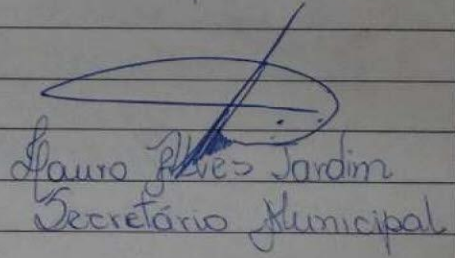 Mauro Alves Jardim
Secretário Municipal